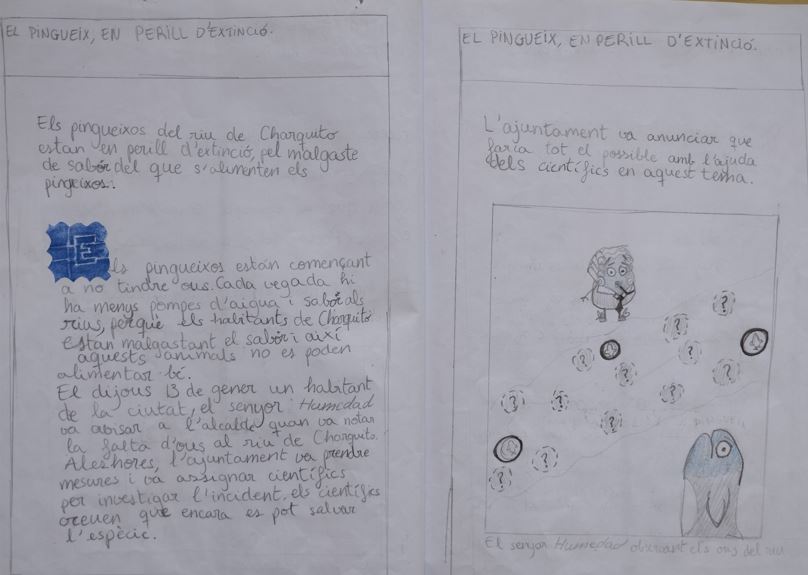 EL PINGUEIX, EN PERILL D'EXTINCIÓ.
Els pingueixos del riu de Charquito
estan en perill d'extinció, pel malgaste
de sabó del que s'alimenten els
pingeixos.
Els pingueixos están començant
a no tindre ous. Cada vegada hi
ha menys pompes d'aigua i sabó als
rius, perquè els habitants de Charquito
estan malgastant el sabó i així
aquests animals no es poden
alimentar bé.
El dijous 13 de gener un habitant
de la ciutat, el senyor Humedad
va avisar a l'alcalde quan va notar
la falta d'ous al riu de Charquito.
Aleshores, l'ajuntament va prendre
mesures i va assignar científics
per investigar l'incident. els científics
creuen que encara es pot salvar
l'espècie.
EL PINGUEIX, EN PERILL D'EXTINCIÓ.
L'ajuntament va anunciar que
faria tot el possible amb l'ajuda
dels científics en aquest tema.
?
?
?
?
?
?
?
?
?
?
?
?
El senyor Humedad observant els ous del riu